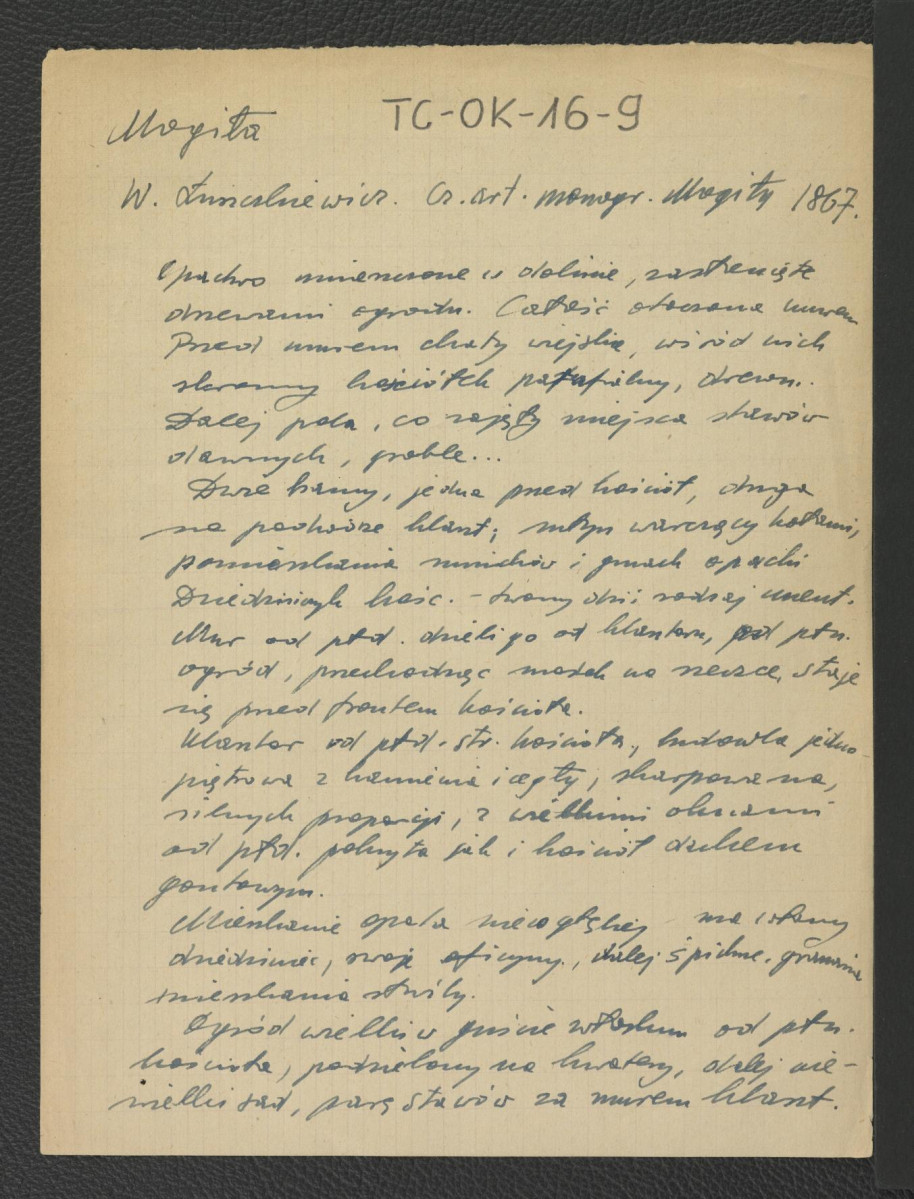 Mogiła
TC-OK-16-9
W. Łuszczkiewicz. Cz. art. monogr. Mogiły 1867.
Opactwo umieszczone w dolinie, zastąpione
drzewami ogrodu. Całość otoczona murem
Przed murem chaty wiejskie, wśród nich
skromny kościółek parafialny, drewn.
Dalej pola, co zajęły miejsca stawów
dawnych, groble...
Dwie bramy, jedna przed kościół, druga
na podwórze klaszt; młyn warczący kołami,
pomieszkania mnichów i gmach opacki
Dziedziniec kośc. - dziś rodzaj cment.
Mur od płd. dzieli go od klasztoru, od płn.
ogród, przechodząc mostek na rzeczce, staje
się przed frontem kościoła.
Klasztor od płd. str. kościoła, budowla jedno
piętrowa z kamienia i cegły, skarpowana,
silnych proporcji, z wielkimi oknami
od płd. pokryta jak i kościół dachem
gontowym.
Mieszkanie opata nieco głębiej ma własny
dziedziniec, swoje oficyny, dalej śpichrze,
mieszkania służby.
Ogród wielki w guście włoskim od płn.
kościoła, podzielony na kwatery, dalej nie-
wielki sad, parę stawów za murem klaszt.